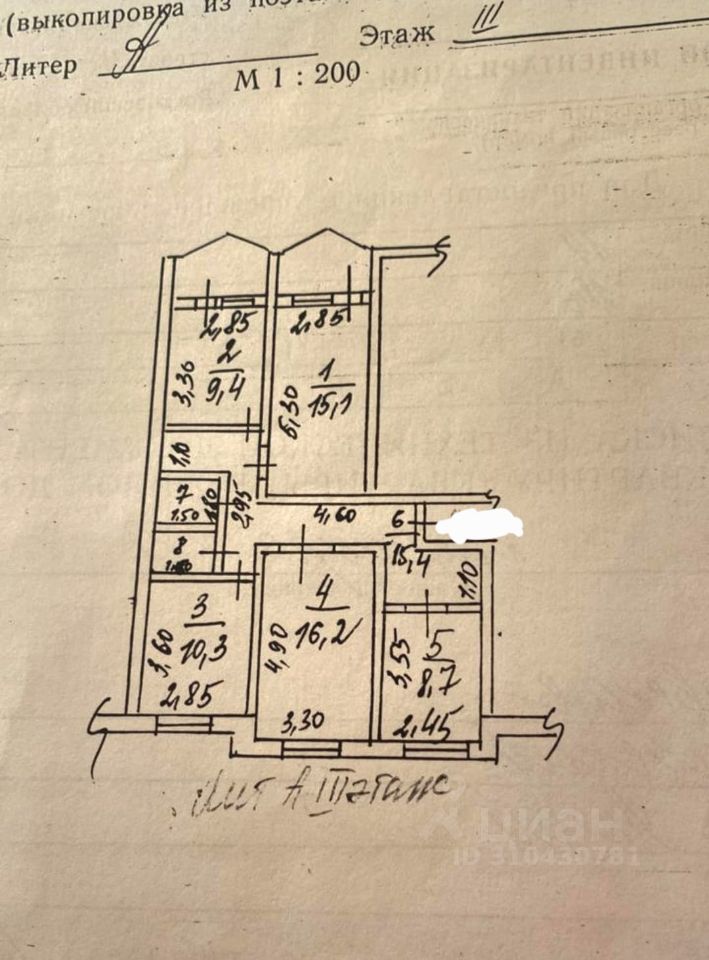 (выкопировка из
Литер
Этаж III
М 1 : 200
2,85
2,85
2
9,4
3,30
1
15,1
5,30
1,10
7
1.50
2,95
4,60
6
15,4
8
1,10
3
10,3
3,60
2,85
4
16,2
4,90
3,30
5
8,7
3,55
2,45
Лит А III этаж
циан
ID 310430781